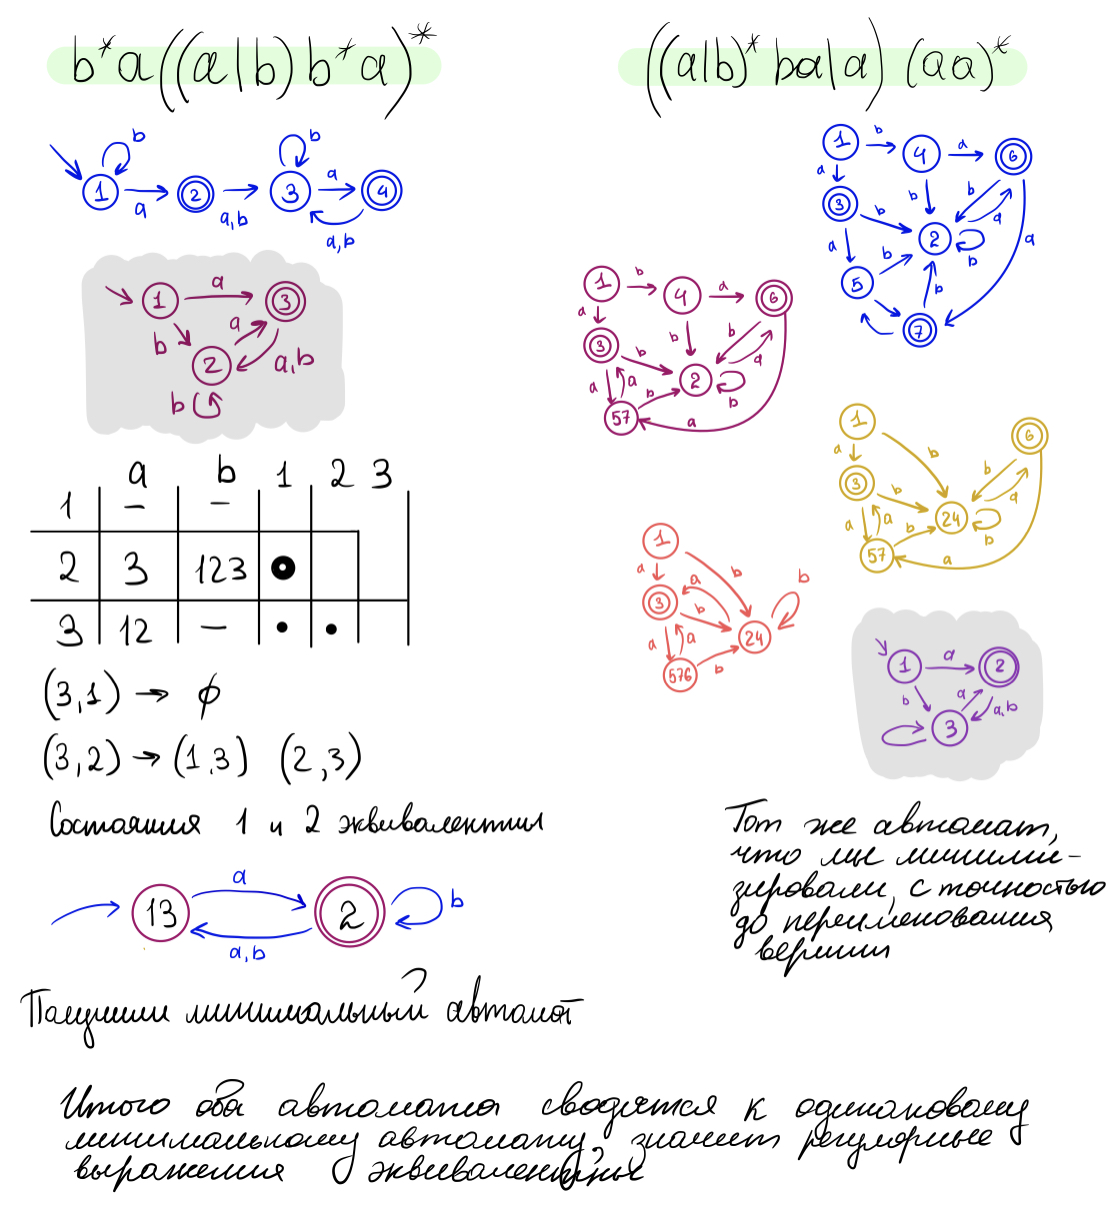 b*a((a|b)b*a)*
((a|b)*ba|a)(aa)*
b
b
1
a
2
a,b
3
a
4
a,b
1
a
3
b
a
2
a,b
b
a b 1 2 3
1 – –
2 3 123
3 12 –
(3,1) → ϕ
(3,2) → (1,3) (2,3)
Состояния 1 и 2 эквивалентны
a
13
2
b
a,b
Получили минимальный автомат
1
b
4
a
6
a
b
b
3
b
a
2
a
a
b
5
b
b
7
1
b
4
a
6
a
b
b
3
b
a
a
a
2
b
b
57
a
1
6
a
b
b
3
b
a
a
a
24
b
b
57
a
1
a
b
b
a
3
b
a
a
24
576
b
1
a
2
b
a
a,b
3
Тот же автомат,
что мы миними-
зировали, с точностью
до переименования
вершин
Итого оба автомата сводятся к одинаковому
минимальному автомату, значит регулярные
выражения эквивалентные